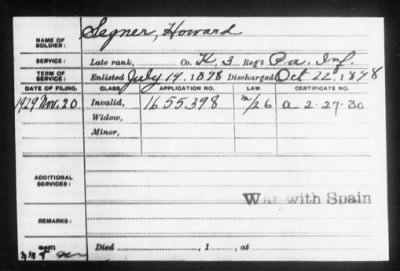 NAME OF SOLDIER: Segner, Howard
SERVICE: Late rank, Co. K, 3 Reg't Pa. Inf.
TERM OF SERVICE: Enlisted July 19, 1898 Discharged Oct 22, 1898
DATE OF FILING. CLASS. APPLICATION NO. LAW. CERTIFICATE NO.
1929 Nov. 20 Invalid, 1655398 m/26 a 2-27-30
Widow,
Minor,
ADDITIONAL SERVICES:
War with Spain
REMARKS:
Died , 1 , at